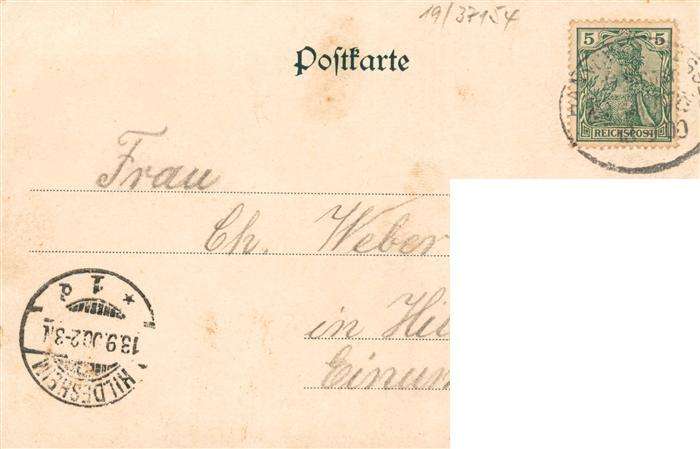 19/37154
Postkarte
5 5
REICHSPOST
Frau
Ch. Weber
in Hil
Einum
1 d
13.9.00.2-3N.
HILDESHEIM